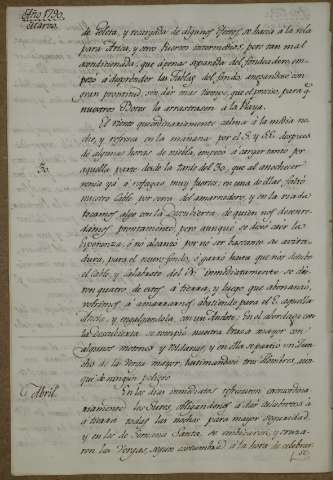 Año 1790.
Marzo.
de Peleta, y recargada de algunos Efectos se hacía a la vela
para Arica, y otros Puertos intermedios, pero tan mal
acondicionada, que apenas separada del fondeadero, em-
pezó a desprender las Tablas del fondo, anegandose con
gran prontitud, sin dar mas tiempo, que el preciso, para q.
nuestros Botes la arrastrasen a la Playa.
El viento que ordinariamente calma a la media no-
che, y refresca en la mañana por el S. y SSE. despues
de algunas horas de niebla, empezó a cargar tanto por
30. aquella parte desde la tarde del 30, que al anochecer
venia ya a rafagas muy fuertes, en una de ellas faltó
nuestro Cable por cerca del amarradero, y en la ria da
tocamos algo con la Descubierta de quien nos desenre-
damos prontamente, pero aunque se dexó caer la
Esperanza, o no alcanzó por no ser bastante su avitra-
dura, para el nuevo fondo, o garró hasta que
el cable, y calabrote del inmediatamente se die-
ron quatro de estos a tierra, y luego que abonanzó,
volvimos a amarrarnos abatiendo para el E. aquella
Noche, y espiandola, con un Anclote. En el abordage con
la Descubierta se rompió nuestra braza mayor con
algunos motones y Vetamas, y en ella se partió un Pen-
ol de la Verga mayor, lastimandose tres Hombres, aun-
que de ningun peligro.
Abril. En los dias inmediatos refrescaron extraordina-
riamente los Sures, obligandonos a dar calabrotes a
a tierra todas las noches para mayor seguridad,
y en los de Semana Santa, se embicaron, y cruza-
ron las Vergas, segun costumbre a la hora de celebrar-
se